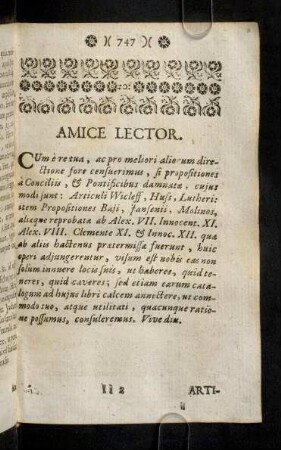 )( 747 )(
AMICE LECTOR.
CUm è re tua, ac pro meliori aliorum dire-
ctione fore censuerimus, si propositiones
à Conciliis, & Pontificibus damnatæ, cujus
modi sunt: Articuli Wicleff, Huss, Lutheri:
item Propositiones Baji, Jansenii, Molinos,
aliæque reprobatæ ab Alex. VII. Innocent. XI.
Alex. VIII. Clemente XI. & Innoc. XII. quæ
ab aliis hactenus prætermissæ fuerunt, huic
operi adjungerentur, visum est nobis eas non
solùm in suere locis suis, ut haberes, quid te-
neres, quid caveres; sed etiam earum cata-
logum ad hujus libri calcem annectere, ut com-
modo tuo, atque utilitati, quacunque ratio-
ne possumus, consuleremus. Vive diu.
ARTI-